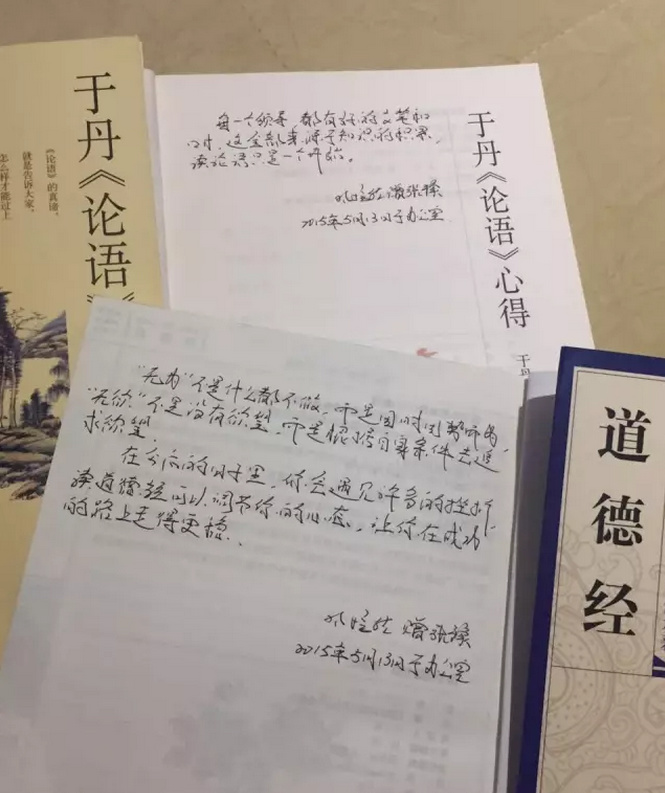 于丹《论语》
《论语》的真谛，
就是告诉大家，
怎么样才能过上
每一个领导，都有好的文笔和
口才，这全部来源于知识的积累，
读论语只是一个开始。
赠张
2015年5月13日于办公室
于丹《论语》心得
于丹
“无为”不是什么都不做，而是因时因势而为，
“无欲”不是没有欲望，而是根据自家条件去追
求欲望。
在今后的日子里，你会遇见许多的挫折，
读道德经可以调节你的心态，让你在成功
的路上走得更稳。
赠张
2015年5月13日于办公室
道德经